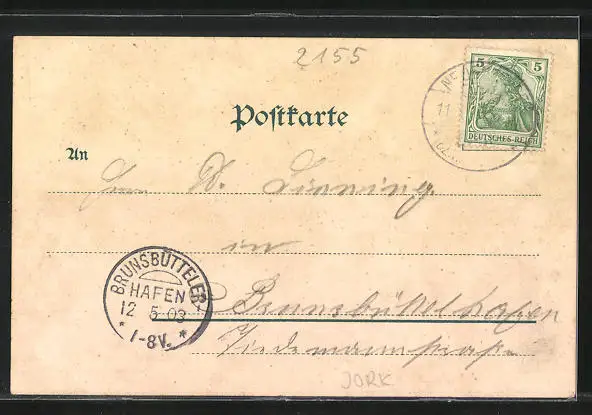 2155
5 5
DEUTSCHES-REICH
11
Postkarte
An
Herrn D.
in
BRUNSBÜTTELER-
HAFEN
12 5 03
* 1-8V. *
Brunsbüttelhafen
JORK